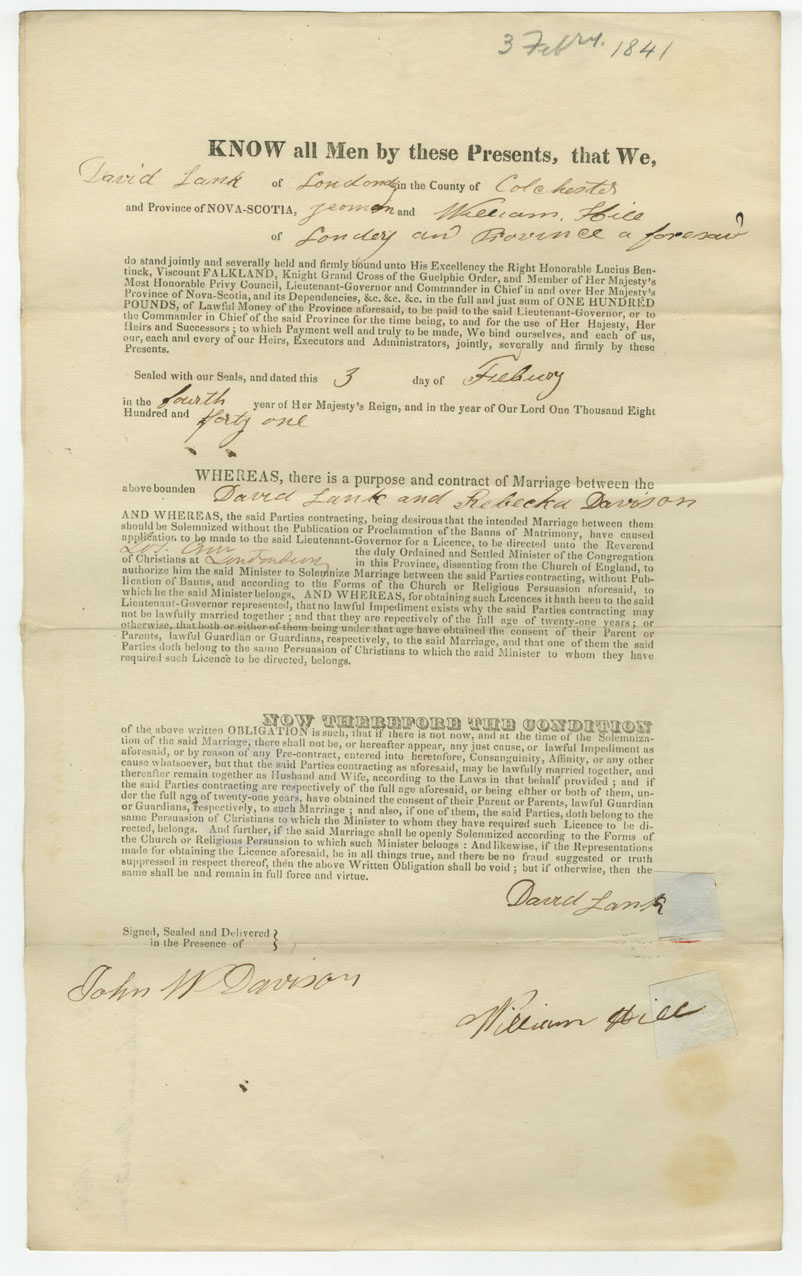 3 Febry. 1841
KNOW all Men by these Presents, that We,
David Lank of Londondy in the County of Colchester
and Province of NOVA-SCOTIA, yeomon and William Hill
of Londery and Province a foresaid
do stand jointly and severally held and firmly bound unto His Excellency the Right Honorable Lucius Ben-
tinck, Viscount FALKLAND, Knight Grand Cross of the Guelphic Order, and Member of Her Majesty's
Most Honorable Privy Council, Lieutenant-Governor and Commander in Chief in and over Her Majesty's
Province of Nova-Scotia, and its Dependencies, &c. &c. &c. in the full and just sum of ONE HUNDRED
POUNDS, of Lawful Money of the Province aforesaid, to be paid to the said Lieutenant-Governor, or to
the Commander in Chief of the said Province for the time being, to and for the use of Her Hajesty, Her
Heirs and Successors ; to which Payment well and truly to be made, We bind ourselves, and each of us,
our, each and every of our Heirs, Executors and Administrators, jointly, severally and firmly by these
Presents.
Sealed with our Seals, and dated this 3 day of Feebury
in the fourth year of Her Majesty's Reign, and in the year of Our Lord One Thousand Eight
Hundred and forty one
WHEREAS, there is a purpose and contract of Marriage between the
above bounden David Lank and Rebecka Davison
AND WHEREAS, the said Parties contracting, being desirous that the intended Marriage between them
should be Solemnized without the Publication or Proclamation of the Banns of Matrimony, have caused
application to be made to the said Lieutenant-Governor for a Licence, to be directed unto the Reverend
the duly Ordained and Settled Minister of the Congregation
of Christians at in this Province, dissenting from the Church of England, to
authorize him the said Minister to Solemnize Marriage between the said Parties contracting, without Pub-
lication of Banns, and according to the Forms of the Church or Religious Persuasion aforesaid, to
which he the said Minister belongs. AND WHEREAS, for obtaining such Licences it hath been to the said
Lieutenant-Governor represented, that no lawful Impediment exists why the said Parties contracting may
not be lawfully married together ; and that they are repectively of the full age of twenty-one years ; or
otherwise, that both or either of them being under that age have obtained the consent of their Parent or
Parents, lawful Guardian or Guardians, respectively, to the said Marriage, and that one of them the said
Parties doth belong to the same Persuasion of Christians to which the said Minister to whom they have
required such Licence to be directed, belongs.
NOW THEREFORE THE CONDITION
of the above written OBLIGATION is such, that if there is not now, and at the time of the Solemniza-
tion of the said Marriage, there shall not be, or hereafter appear, any just cause, or lawful Impediment as
aforesaid, or by reason of any Pre-contract, entered into heretofore, Consanguinity, Affinity, or any other
cause whatsoever, but that the said Parties contracting as aforesaid, may be lawfully married together, and
thereafter remain together as Husband and Wife, according to the Laws in that behalf provided ; and if
the said Parties contracting are respectively of the full age aforesaid, or being either or both of them, un-
der the full age of twenty-one years, have obtained the consent of their Parent or Parents, lawful Guardian
or Guardians, respectively, to such Marriage ; and also, if one of them, the said Parties, doth belong to the
same Persuasion of Christians to which the Minister to whom they have required such Licence to be di-
rected, belongs. And further, if the said Marriage shall be openly Solemnized according to the Forms of
the Church or Religious Persuasion to which such Minister belongs : And likewise, if the Representations
made for obtaining the Licence aforesaid, be in all things true, and there be no fraud suggested or truth
suppressed in respect thereof, then the above Written Obligation shall be void ; but if otherwise, then the
same shall be and remain in full force and virtue.
David Lank
Signed, Sealed and Delivered
in the Presence of
John W Davison
William Hill